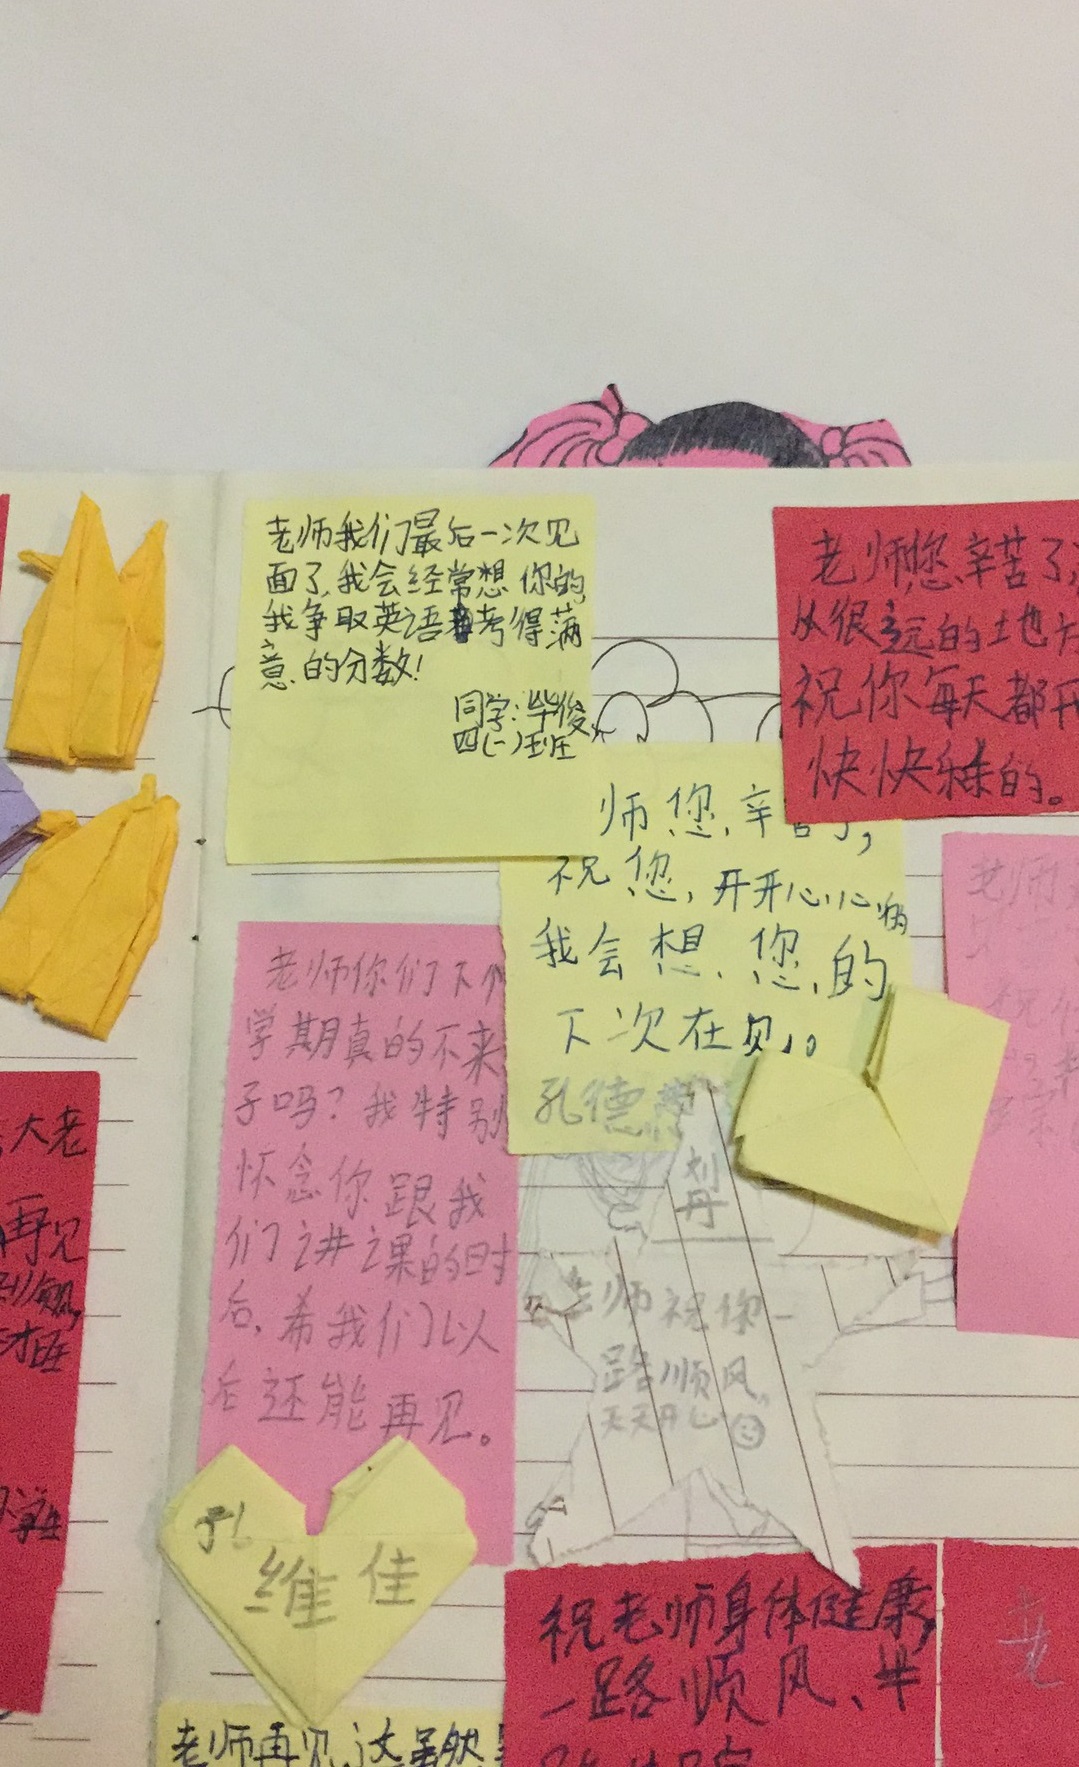 老师我们最后一次见
面了,我会经常想你的,
我争取英语考得满
意的分数!
同学:毕俊
四(一)班
老师您辛苦了,
从很远的地方
祝你每天都开
快快乐的。
师您,辛苦了,
祝您,开开心心
我会想,您,的
下次在见,。
孔德
老师你们下个
学期真的不来
子吗?我特别
怀念你跟我
们讲课的时
后,希我们以
后还能再见。
老师祝你一
路顺风,
天天开心
孔
维佳
大老
再见
学生
祝老师身体健康,
一路顺风、
老师再见,这虽然
老
老师